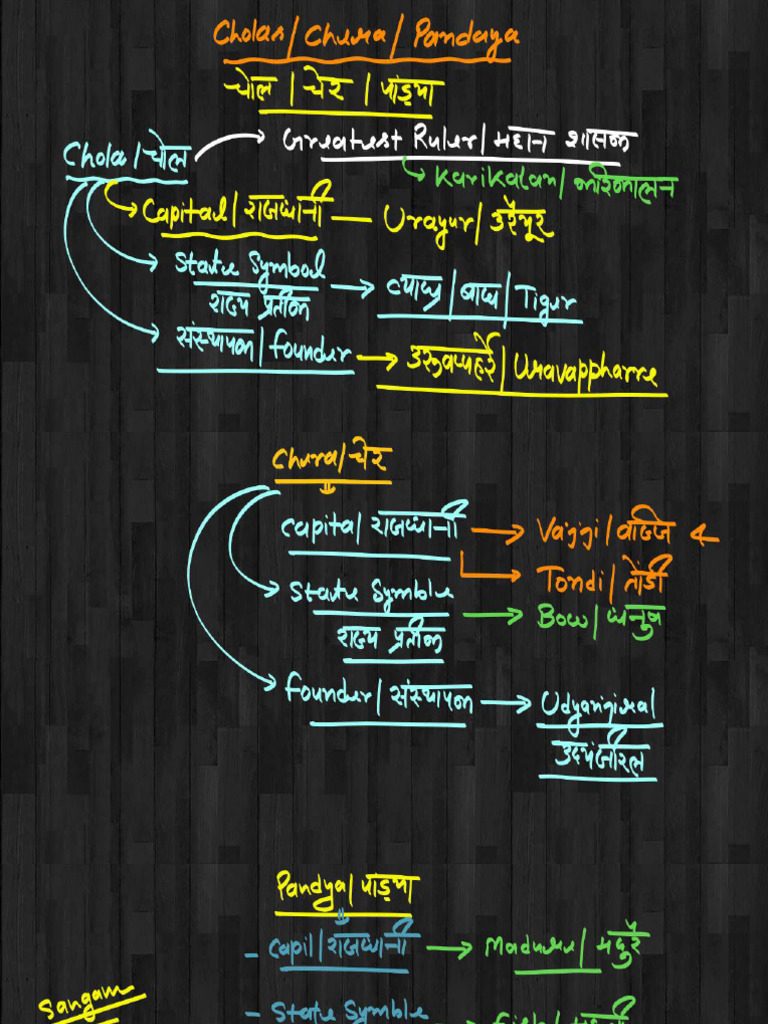 Cholas/Chera/Pandaya
चोल | चेर | पांड्या
Chola/चोल → Greatest Ruler/महान शासक
Karikalan/करिकालन
Capital/राजधानी — Urayur/उरैयूर
State Symbol राज्य प्रतीक → व्याघ्र/बाघ/Tigur
संस्थापक/founder → उरूवप्पहर्रे/Uravappharre
Chera/चेर
Capital राजधानी → Vajji/वाज्जि
Tondi/तोंडी
State Symble राज्य प्रतीक → Bow/धनुष
founder/संस्थापक → Udyanjiral
उदयंजीरल
Pandya/पांड्या
- Capil/राजधानी → Madurai/मदुरै
Sangam
- State Symble